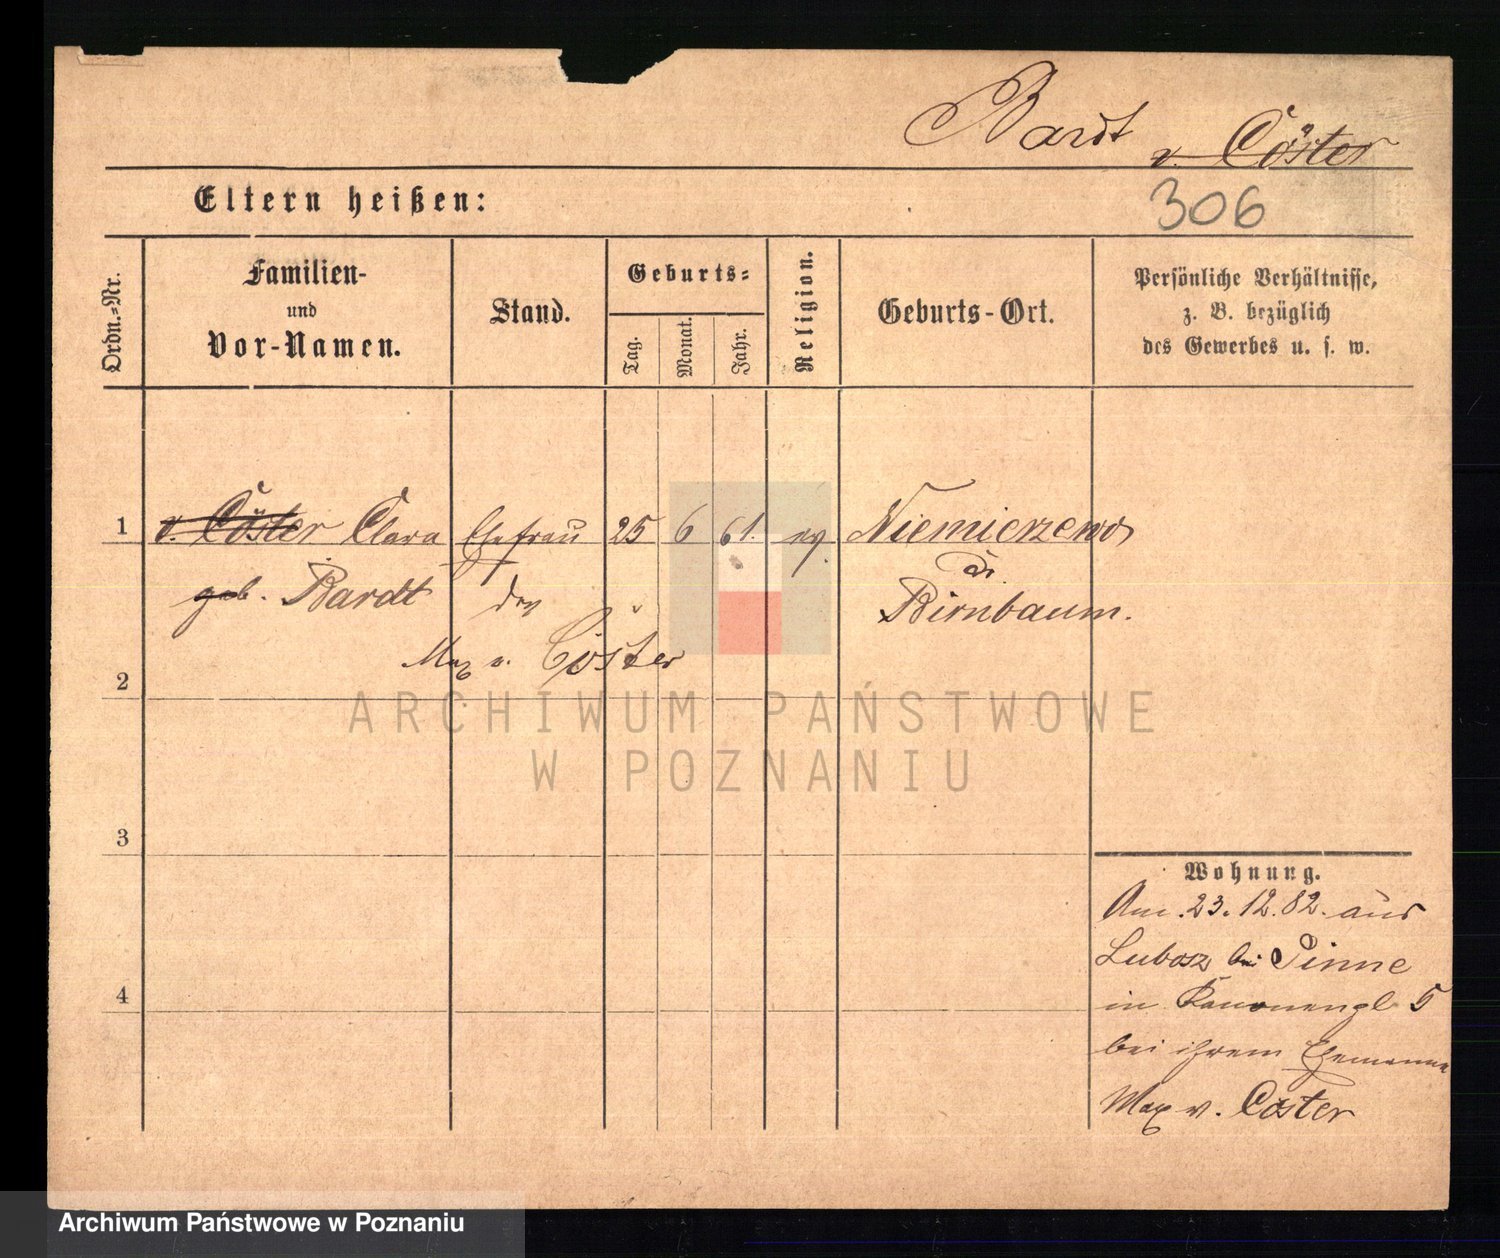 Bardt v. Cöster
Eltern heißen:
306
Ordn.-Nr.
Familien-
und
Vor-Namen.
Stand.
Geburts-
Tag.
Monat.
Jahr.
Religion.
Geburts-Ort.
Persönliche Verhältnisse,
z. B. bezüglich
des Gewerbes u. s. w.
1 v. Cöster Clara Ehefrau 25 6 61. ev. Niemierzewo
geb. Bardt des Birnbaum.
Max v. Cöster
2
ARCHIWUM PAŃSTWOWE
W POZNANIU
3
4
Wohnung.
Am. 23.12.82. aus
Lubosz bei Pinne
in Kanonenpl 5
bei ihrem Ehemanne
Max v. Cöster
Archiwum Państwowe w Poznaniu